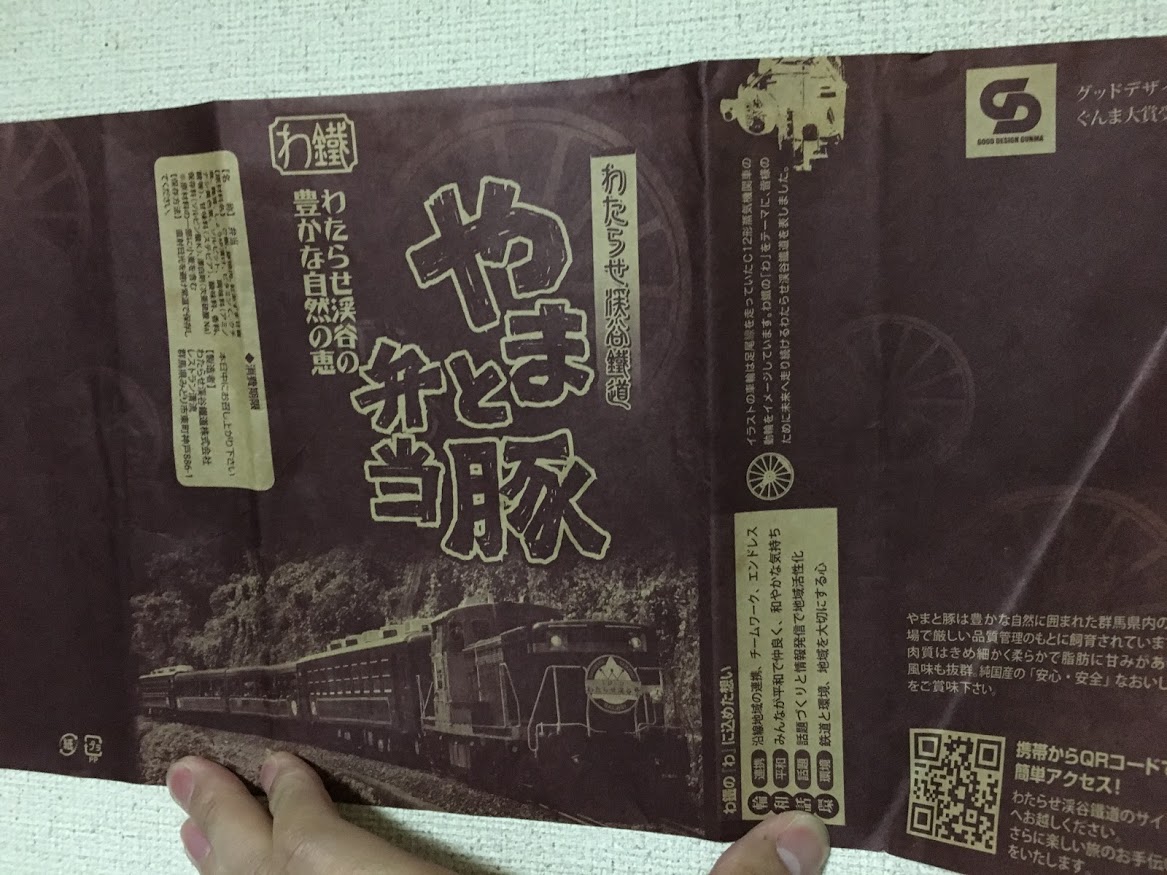 わ鐵
わたらせ渓谷の
豊かな自然の恵
わたらせ渓谷鐵道
やまと豚
弁当
弁当
てください。
直射日光を避け常温で保存し
◆消費期限
本日中にお召し上がり下さい
【製造者】
わたらせ渓谷鐵道株式会社
レストラン清流
群馬県みどり市東町神戸886-1
イラストの車輪は足尾線を走っていたC12形蒸気機関車の
動輪をイメージしています。わ鐵の「わ」をテーマに、皆様の
ために未来へ走り続けるわたらせ渓谷鐵道を表しました。
わ鐵の「わ」に込めた想い
輪 連携 沿線地域の連携、チームワーク、エンドレス
和 平和 みんなが平和で仲良く、和やかな気持ち
話 話題 話題づくりと情報発信で地域活性化
環 環境 鉄道と環境、地域を大切にする心
GOOD DESIGN GUNMA
グッドデザ
ぐんま大賞
やまと豚は豊かな自然に囲まれた群馬県内の
場で厳しい品質管理のもとに飼育されていま
肉質はきめ細かく柔らかで脂肪に甘みがあ
風味も抜群。純国産の「安心・安全」なおいし
をご賞味下さい。
携帯からQRコードで
簡単アクセス！
わたらせ渓谷鐵道のサイ
へお越しください。
さらに楽しい旅のお手伝
をいたします。